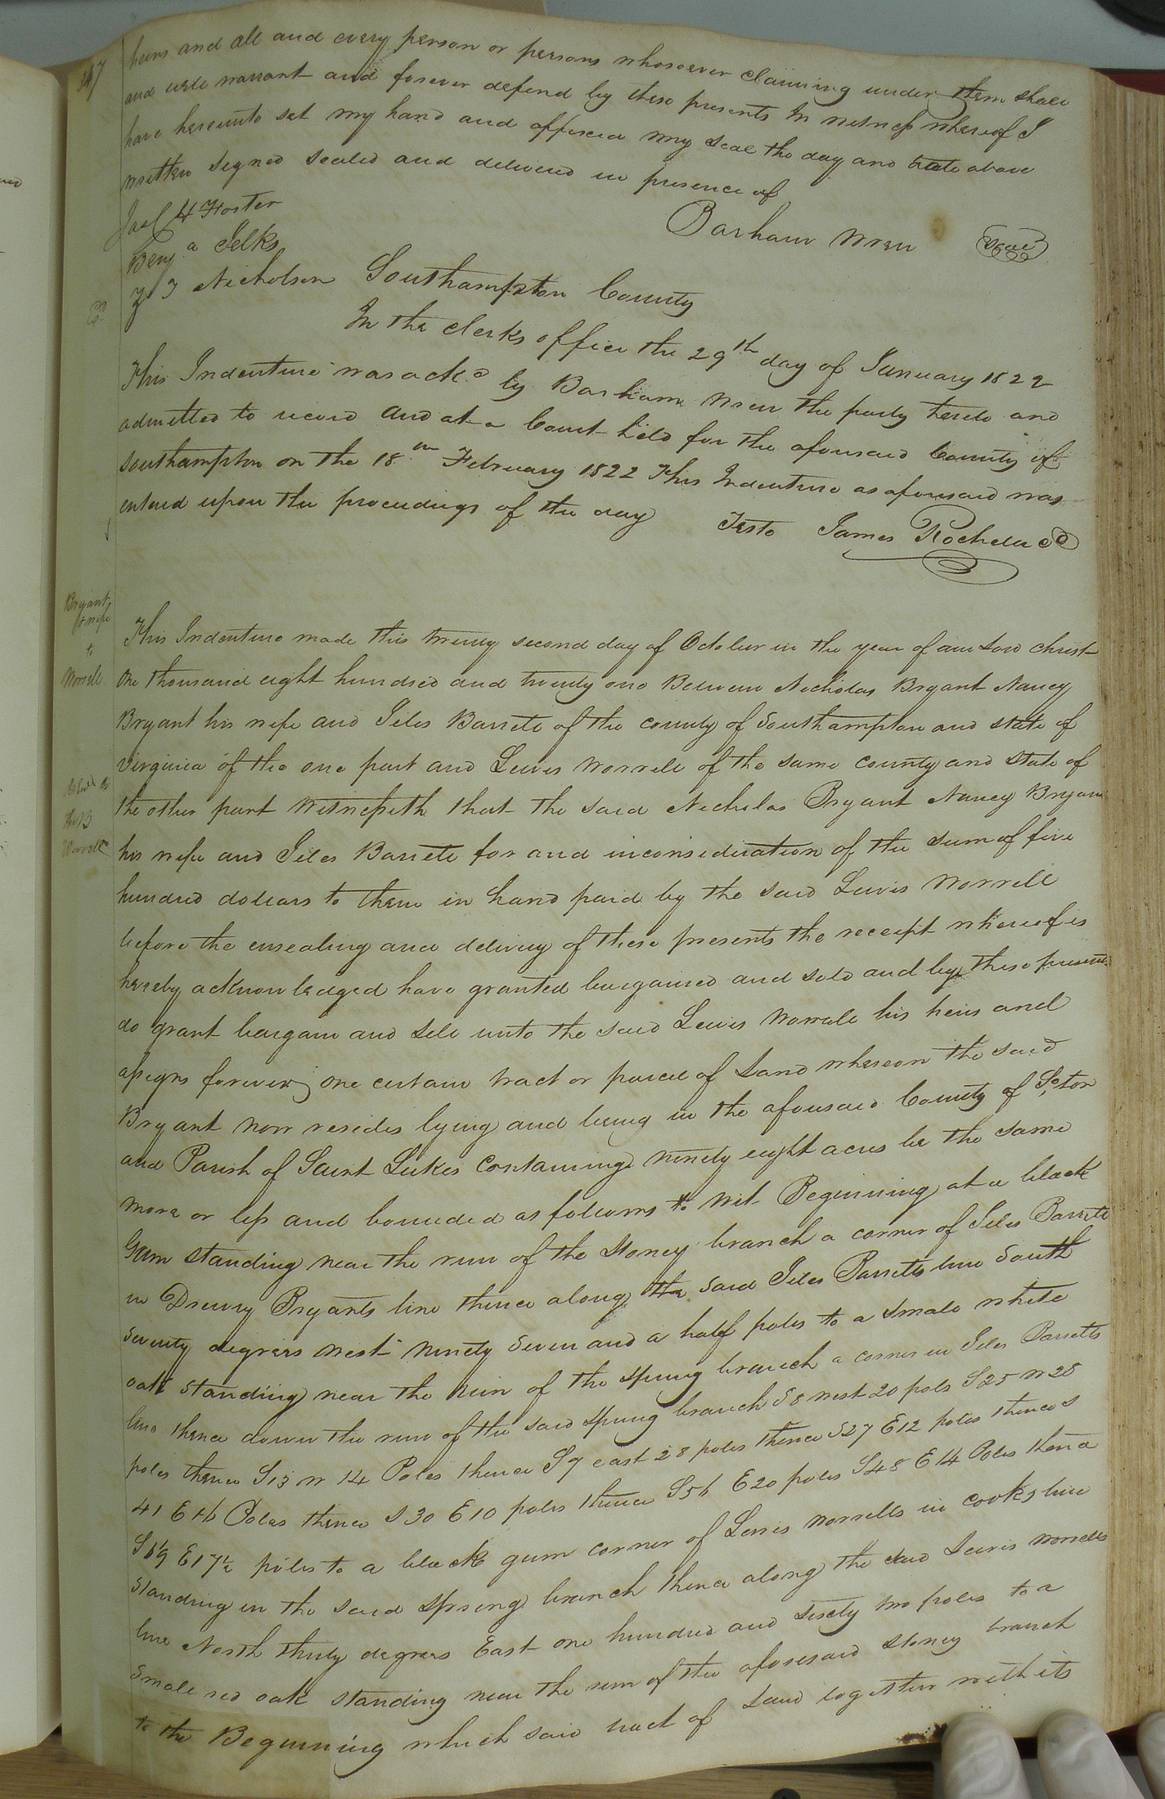 347
heirs and all and every person or persons whosoever claiming under them shall
and will warrant and forever defend by these presents In witness whereof I
have hereunto set my hand and affixed my seal the day and date above
written Signed Sealed and delivered in presence of
Joel H Foster
Barham Wren Seal
Benj. a Jelks
Z J Nicholson
Southampton County
In the clerks office the 29th day of January 1822
This Indenture was ackd by Barham Wren the party hereto and
admitted to record and at a Court held for the aforesaid County of
Southampton on the 18th February 1822 This Indenture as aforesaid was
entered upon the proceedings of the day Teste James Rochelle CC
Bryant
& wife
to
Worrell
This Indenture made this twenty second day of October in the year of our Lord christ
One thousand eight hundred and twenty one Between Nicholas Bryant Nancy
Bryant his wife and Jiles Barrett of the county of Southampton and state of
virginia of the one part and Lewis Worrell of the same county and State of
the other part Witnesseth that the said Nicholas Bryant Nancy Bryant
his wife and Jiles Barrett for and inconsideration of the sum of five
hundred dollars to them in hand paid by the said Lewis Worrell
before the ensealing and delivery of these presents the receipt whereof is
hereby acknowledged have granted bargained and sold and by these presents
do grant bargain and sell unto the said Lewis Worrell his heirs and
assigns forever one certain tract or parcel of Land whereon the said
Bryant now resides lying and being in the aforesaid County of So.ton
and Parish of Saint Lukes Containing ninety eight acres be the same
more or less and bounded as follows to Wit Beginning at a black
Gum standing near the run of the Stoney branch a corner of Jiles Barretts
in Drewry Bryants line thence along the said Jiles Barretts line South
Seventy degrees West Ninety Seven and a half poles to a small white
oak standing near the run of the Spring branch a corner in Jiles Barretts
line thence down the run of the said Spring branch S 8 west 20 pols S 25 W 28
poles thence S 13 W 14 Poles thence S 7 east 28 poles thence S 27 E 12 poles thence S
41 E 16 Poles thence S 30 E 10 poles thence S 56 E 20 poles S 48 E 14 Poles thence
E 17½ poles to a black gum corner of Lewis Worrells in Cooks line
Standing in the said Spring branch thence along the said Lewis Worrells
line North thirty degrees East one hundred and sixty two poles to a
Small red oak standing near the run of the aforesaid Stoney branch
to the Beginning which said tract of Land together with its